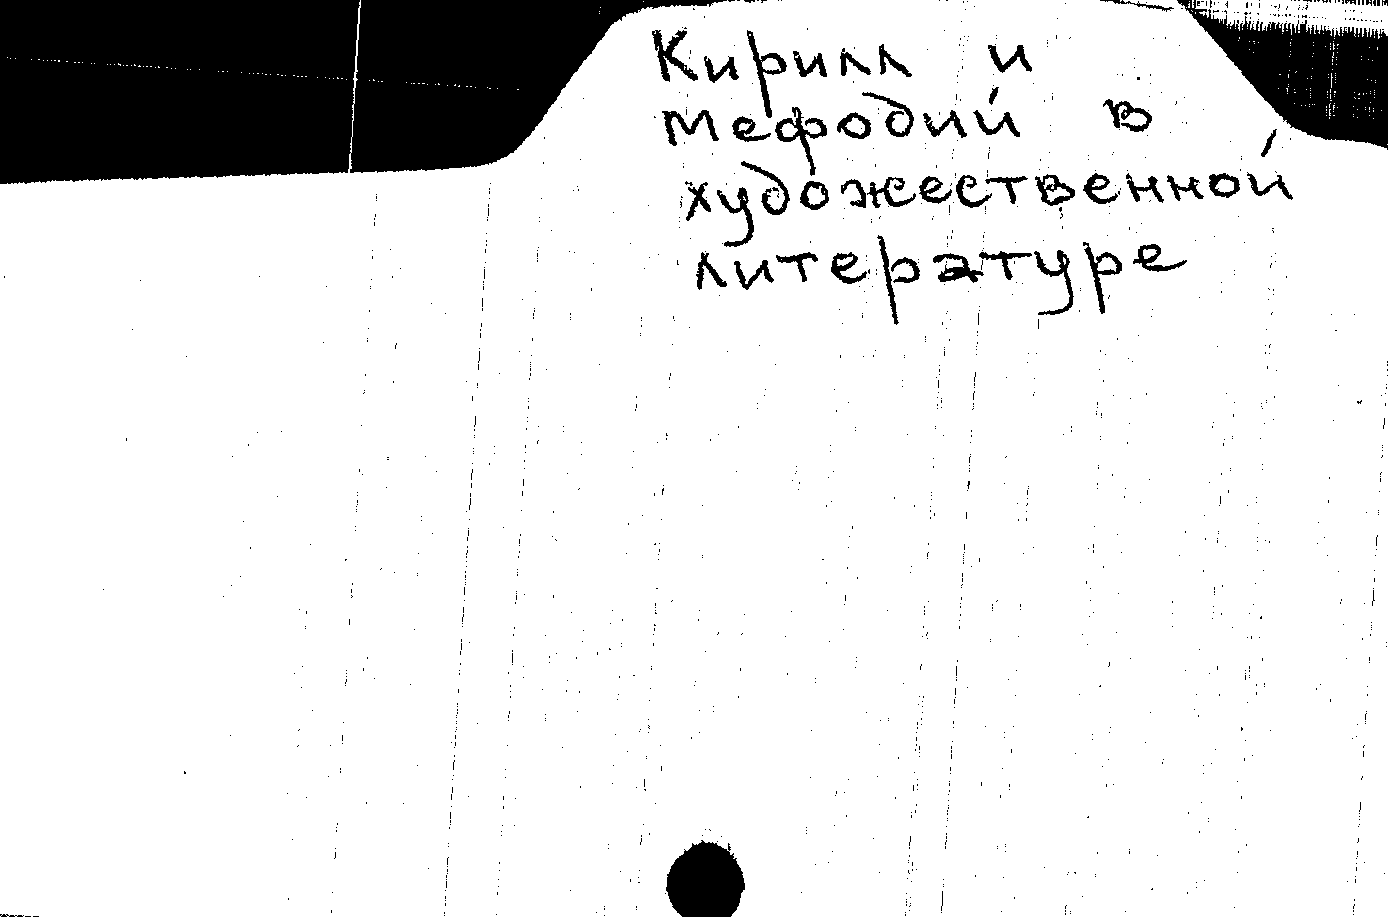 Кирилл и
Мефодий в
художественной
литературе